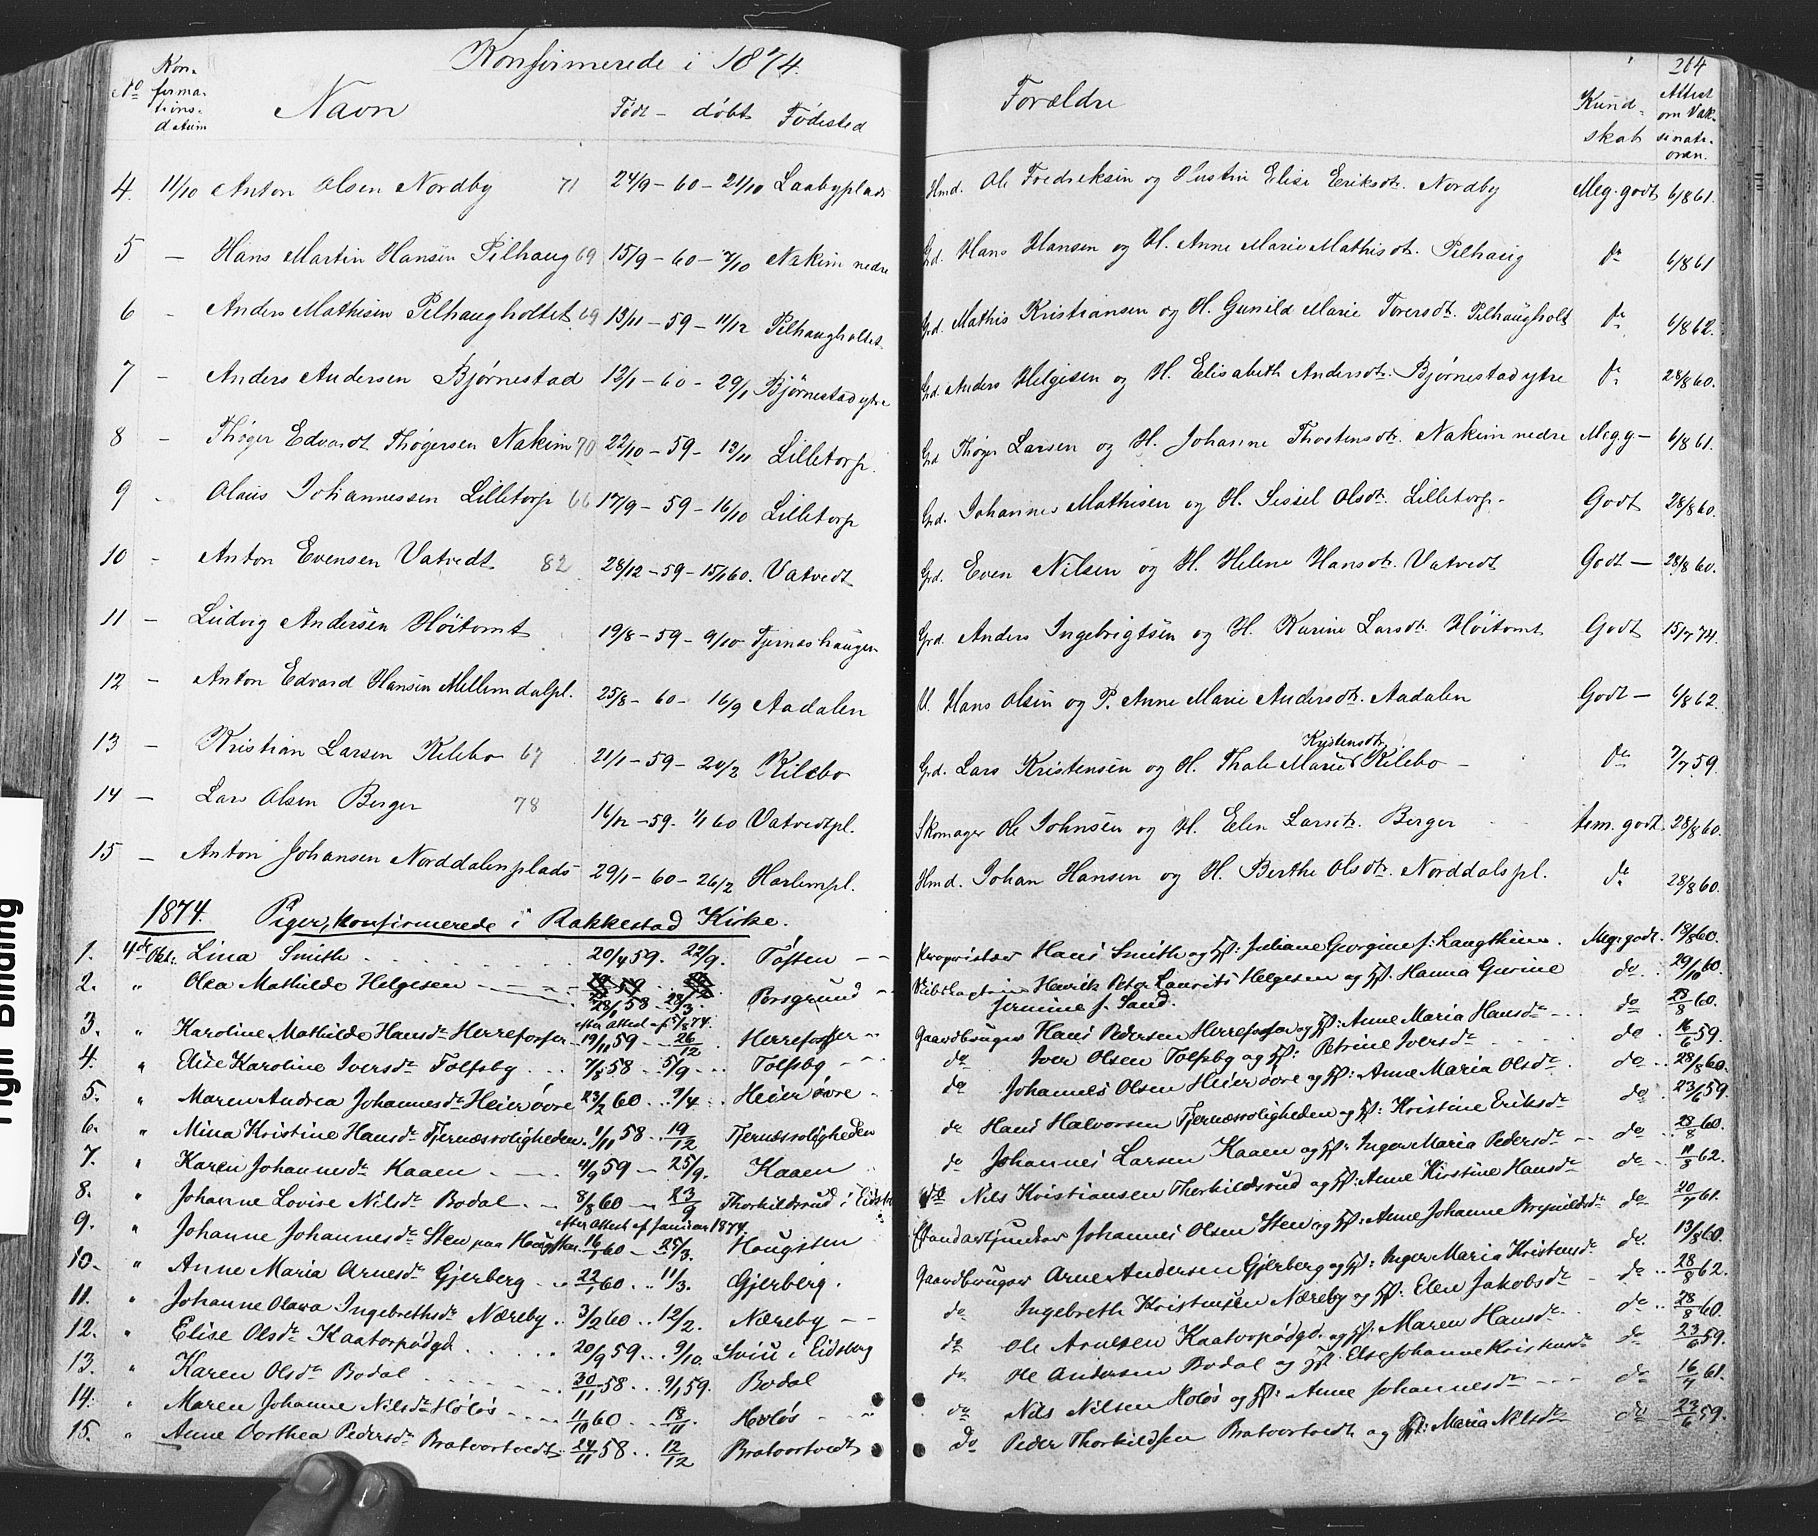 Konfirmerede i 1874.
264
No Konfirmationsdatum Navn Født - døbt Fødested Forældre Kundskab Attest om Vaksinationen.
4. 11/10 Anton Olsen Nordby 71 24/9 - 60 - 21/10 Laabyplads Hmd. Ole Fredriksen og Hustru Elise Eriksdtr. Nordby Meg. godt 6/8 61.
5 - Hans Martin Hansen Pilhaug 69 15/9 - 60 - 7/10 Nakim nedre Grd. Hans Hansen og H. Anne Marie Mathisdtr. Pilhaug do 6/8 61
6 - Anders Mathisen Pilhaugholtet 69 13/11 - 59 - 11/12 Pilhaugholtet. Grd. Mathis Kristiansen og H. Gunild Marie Toresdtr. Pilhaugholt do 6/8 62.
7 - Anders Andersen Bjørnestad 12/1 - 60 - 29/1 Bjørnestad ytre Grd. Anders Helgesen og H. Elisabeth Andersdtr. Bjørnestad ytre do 28/8 60.
8 - Thøger Edvardt Thøgersen Nakim 70 22/10 - 59 - 13/11 Lilletorp. Grd Thøger Larsen og H. Johanne Thostensdtr. Nakim nedre Meg. g - 6/8 61.
9 - Olaus Johannessen Lilletorp 66 17/9 - 59 - 16/10 Lilletorp Grd. Johannes Mathisen og H. Sissel Olsdtr. Lilletorp - Godt 28/8 60.
10 - Anton Evensen Vatvedt 82 28/12 - 59 - 15/1 60. Vatvedt Grd. Even Nilsen og H. Helene Hansdtr. Vatvedt Godt - 28/8 60.
11 - Ludvig Andersen Høitomt 19/8 - 59 - 9/10 - Tjerneshaugen Grd. Anders Ingebrigtsen og H. Karine Larsdtr. Høitomt Godt 15/7 74.
12 - Anton Edvard Hansen Mellemdalpl. 25/8 - 60 - 16/9 Aadalen U. Hans Olsen og P. Anne Marie Andersdtr. Aadalen Godt - 6/8 62.
13 - Kristian Larsen Kilebo 67 21/1 - 59 - 20/2 Kilebo Grd. Lars Kristensen og H. Thale Marie Kristensdtr Kilebo - do 7/7 59.
14 - Lars Olsen Berger 78 16/12 - 59. 1/1 60 Vatvedtpl. Skomager Ole Johnsen og H. Elen Larsdtr. Berger tem. godt. 28/8 60.
15 - Anton Johansen Norddalenplads 29/1 - 60 - 26/2 Harlempl. Hmd. Johan Hansen og H. Berthe Olsdtr. Norddalspl. do 28/8 60.
1874. Piger, konfirmerede i Rakkestad Kirke.
1. 4de Okt: Lina Smith 20/4 59. 22/9. Toften -- Proprietær Hans Smith og Hst: Juliane Georgine f. Langthim. Meg. godt. 18/8 60.
2. " Olea Mathilde Helgesen 28/1 58 - 28/3. Porsgrund -- Henrik Peter Laurits Helgesen og Hst: Hanna Gurine do 29/10 60.
efter Attest af 5/8 74. Jermine f. Sand.
3. " Karoline Mathilde Hansdtr Herrefosser 19/11 59 - 26/12 Herrefosser - Gaardbruger Hans Pedersen Herrefosser og Hst: Anne Maria Hansdtr do 28/8 60.
4. " Elise Karoline Iversdtr Tolfsby 7/8 58 - 5/9 Tolfsby -- do Iver Olsen Tolfsby og Hst: Petrine Iversdtr do 16/6 59.
5. " Maren Andrea Johannesdtr Heier øvre 23/2 60 9/4 Heier øvre do Johannes Olsen Heier øvre og Hst: Anne Maria Olsdtr do 28/8 60.
6. " Mina Kristine Hansdtr Tjernæsroligheden. 1/11 58 19/12 Tjernæsroligheden do Hans Halvorsen Tjernæsroligheden og Hst: Kristine Eriksdtr do 23/6 59.
7. " Karen Johannesdtr Kaaen 4/9 59 - 25/9. Kaaen do Johannes Larsen Kaaen og Hst: Inger Maria Pedersdtr do 28/8 60.
8. " Johanne Lovise Nilsdtr Bodal 8/8 60 - 23/9 Thorkildsrud i Eidsb do Nils Kristiansen Thorkildsrud og Hst: Anne Kirstine Hansdtr do 11/8 62.
efter Attest af Januar 1874.
9. " Johanne Johannesdtr Sten paa Hougsten 16/1 60 - 25/3. Hougsten Standartjunker Johannes Olsen Sten og Hst: Anne Johanne Brynildsdtr do 20/7 61.
10. " Anne Maria Arnesdtr Gjerberg 22/1 60. 11/3. Gjerberg. Gaardbruger Arne Andersen Gjerberg og Hst: Inger Maria Kristensdtr do. 13/8 60.
11. " Johanne Olava Ingebrethsdtr Næreby 3/2 60 12/2. Næreby -- do Ingebreth Kristensen Næreby og Hst: Elen Jakobsdtr do 28/8 62.
12. " Elise Olsdtr Kaatorpødgd 20/9 59 9/10. Sviu i Eidsberg do Ole Arnesen Kaatorpødgd. og Hst: Maren Hansdtr do 28/8 60.
13. " Karen Olsdtr Bodal 30/11 58 9/1 59. Bodal do Ole Andersen Bodal og Hst: Else Johanne Kristensdtr do 23/6 59.
14. " Maren Johanne Nilsdtr Holøs 11/10 60 18/11 Holøs do Nils Nilsen Holøs og Hst: Anne Johannesdtr do 16/7 61.
15. " Anne Dorthea Pedersdtr Bratvortvedt 24/11 58 12/12 Bratvortvedt do Peder Thorkildsen Bratvortvedt og Hst: Maria Nilsdtr do 23/6 59.
Tight Binding